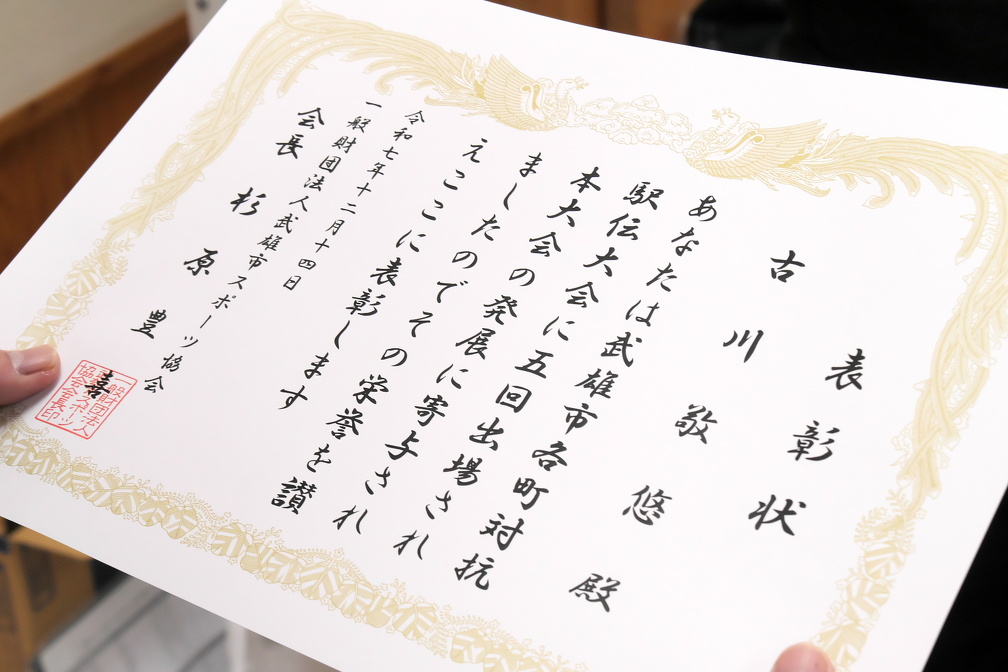 表彰状
古川敬悠殿
あなたは武雄市各町対抗
駅伝大会に五回出場され
本大会の発展に寄与され
ましたのでその栄誉を讃
えここに表彰します
令和七年十二月十四日
一般財団法人武雄市スポーツ協会
会長杉原豊喜